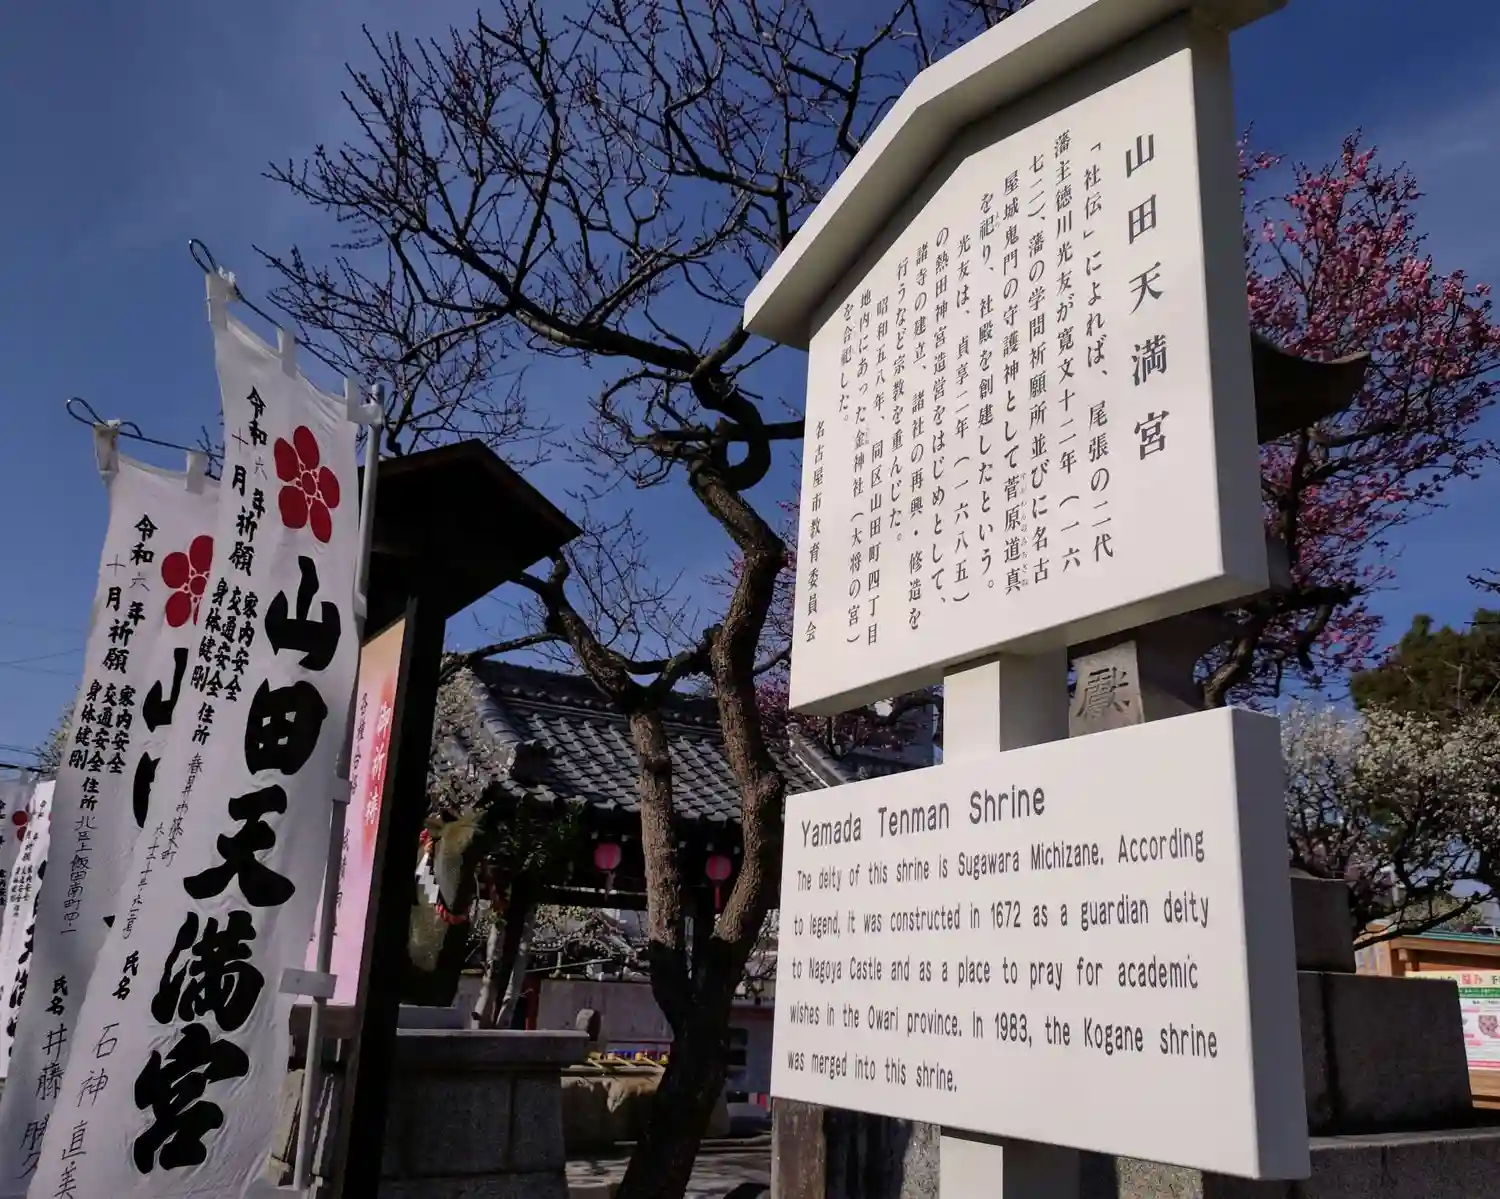 山田天満宮
「社伝」によれば、尾張の二代
藩主徳川光友が寛文十二年（一六
七二）、藩の学問祈願所並びに名古
屋城鬼門の守護神として菅原道真
を祀り、社殿を創建したという。
光友は、貞享二年（一六八五）
の熱田神宮造営をはじめとして、
諸寺の建立、諸社の再興・修造を
行うなど宗教を重んじた。
昭和五八年、同区山田町四丁目
地内にあった金神社（大将の宮）
を合祀した。
名古屋市教育委員会
Yamada Tenman Shrine
The deity of this shrine is Sugawara Michizane. According
to legend, it was constructed in 1672 as a guardian deity
to Nagoya Castle and as a place to pray for academic
wishes in the Owari province. In 1983, the Kogane shrine
was merged into this shrine.
献
山田天満宮
令和六年
十月祈願
家内安全
交通安全
身体健剛
住所
氏名 石神直美
令和六年
十月祈願
家内安全
交通安全
身体健剛
住所
氏名 井藤
山
御祈祷